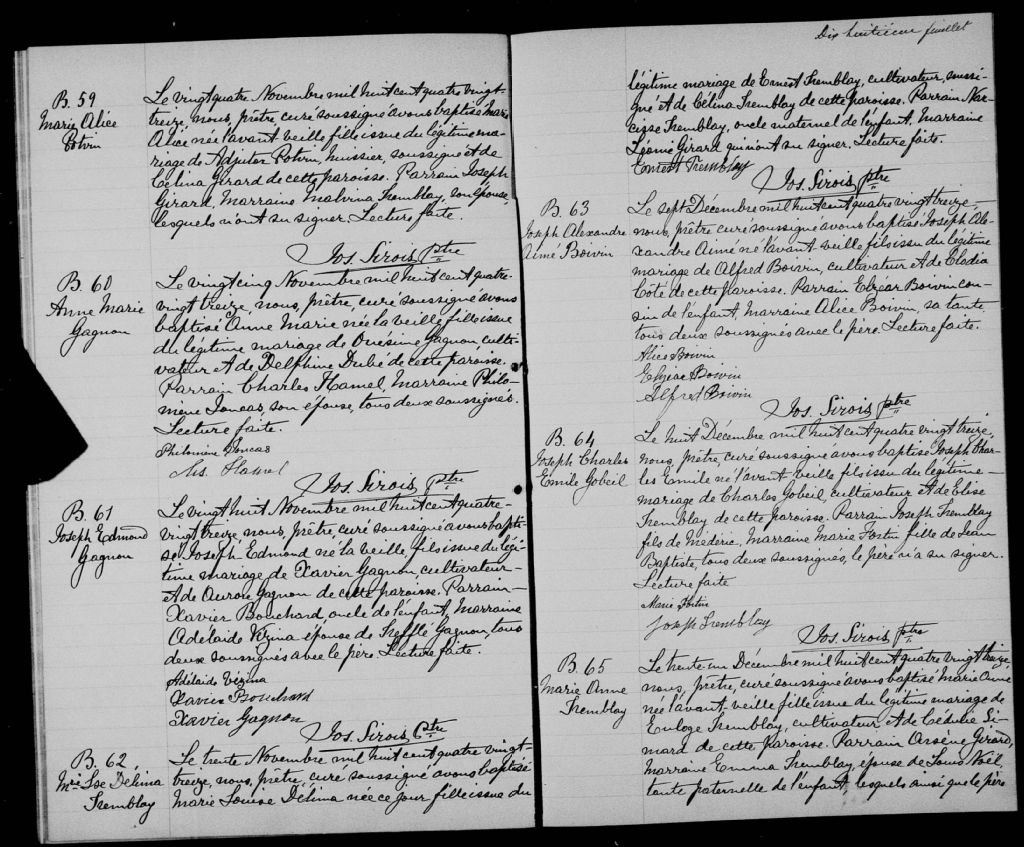 B. 59
Marie Alice
Potvin
Le vingt quatre Novembre mil huit cent quatre vingt-
treize, nous, prêtre, curé soussigné avons baptisé Marie
Alice née l'avant veille fille issue du légitime ma-
riage de Adjutor Potvin, huissier, soussigné et de
Célina Girard de cette paroisse. Parrain Joseph
Girard, Marraine Malvina Tremblay, son épouse,
lesquels n'ont su signer. Lecture faite.
Jos. Sirois, Ptre
B. 60
Anne Marie
Gagnon
Le vingt cinq Novembre mil huit cent quatre-
vingt treize, nous, prêtre, curé soussigné avons
baptisé Anne Marie née la veille fille issue
du légitime mariage de Onésime Gagnon, culti-
vateur et de Delphine Dubé de cette paroisse.
Parrain Charles Hamel, Marraine Philo-
mène Joncas, son épouse, tous deux soussignés.
Lecture faite.
Philomène Joncas
Chs. Hamel
Jos. Sirois, Ptre
B. 61
Joseph Edmond
Gagnon
Le vingt huit Novembre mil huit cent quatre-
vingt treize, nous, prêtre, curé soussigné avons bapti-
sé Joseph Edmond né la veille, fils issue du légi-
time mariage de Xavier Gagnon cultivateur
et de Aurore Gagnon de cette paroisse. Parrain
Xavier Bouchard, oncle de l'enfant, Marraine
Adélaïde Vézina épouse de Trefflé Gagnon, tous
deux soussignés avec le père. Lecture faite.
Adélaïde Vézina
Xavier Bouchard
Xavier Gagnon
Jos. Sirois, Ptre
B. 62
Mie Lse Délima
Tremblay
Le trente Novembre mil huit cent quatre vingt-
treize, nous, prêtre, curé soussigné avons baptisé
Marie Louise Délima née ce jour fille issue du
Dix huitième feuillet
légitime mariage de Ernest Tremblay, cultivateur, soussi-
gné et de Célina Tremblay de cette paroisse. Parrain Nar-
cisse Tremblay, oncle maternel de l'enfant. Marraine
Léomé Girard qui n'ont su signer. Lecture faite.
Ernest Tremblay
Jos. Sirois, ptre
B. 63
Joseph Alexandre
Aimé Boivin
Le sept Décembre mil huit cent quatre vingt treize,
nous, prêtre, curé soussigné avons baptisé Joseph Ale-
xandre Aimé né l'avant-veille fils issu du légitime
mariage de Alfred Boivin, cultivateur et de Elodia
Côté de cette paroisse. Parrain Elzéar Boivin cou-
sin de l'enfant, Marraine Alice Boivin, sa tante,
tous deux soussignés avec le père. Lecture faite.
Alice Boivin
Elzéar Boivin
Alfred Boivin
Jos. Sirois, ptre
B. 64
Joseph Charles
Emile Gobeil
Le huit Décembre mil huit cent quatre vingt treize,
nous, prêtre, curé soussigné avons baptisé Joseph Char-
les Emile né l'avant veille fils issu du légitime
mariage de Charles Gobeil, cultivateur et de Elise
Tremblay de cette paroisse. Parrain Joseph Tremblay
fils de Médéric, Marraine Marie Fortin fille de Jean
Baptiste, tous deux soussignés, le père n'a su signer.
Lecture faite
Marie Fortin
Joseph Tremblay
Jos. Sirois, ptre
B. 65
Marie Anne
Tremblay
Le trente-un Décembre mil huit cent quatre vingt treize,
nous, prêtre, curé soussigné avons baptisé Marie Anne
née l'avant-veille fille issue du légitime mariage de
Euloge Tremblay, cultivateur et de Cédulie Si-
mard de cette paroisse. Parrain Arsène Girard,
Marraine Emma Tremblay, épouse de Louis Noël,
tante paternelle de l'enfant, lesquels ainsi que le père